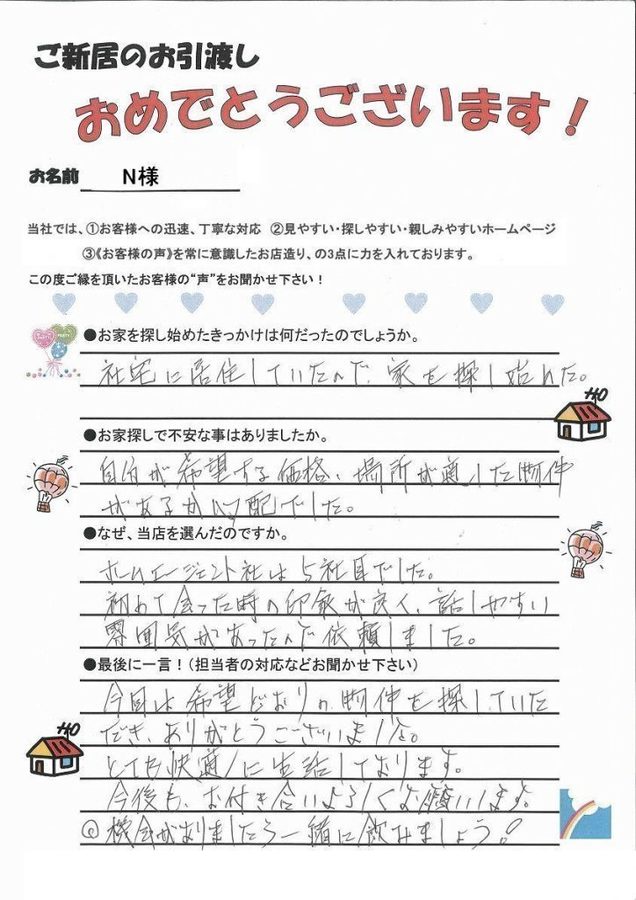 ご新居のお引渡し
おめでとうございます！
お名前 N様
当社では、①お客様への迅速、丁寧な対応 ②見やすい・探しやすい・親しみやすいホームページ
③《お客様の声》を常に意識したお店造り、の3点に力を入れております。
この度ご縁を頂いたお客様の“声”をお聞かせ下さい！
●お家を探し始めたきっかけは何だったのでしょうか。
社宅に居住していたので、家を探し始めた。
HO
●お家探しで不安な事はありましたか。
自分が希望する価格、場所が適した物件
があるか心配でした。
●なぜ、当店を選んだのですか。
ホームエージェント社は5社目でした。
初めて会った時の印象が良く、話しやすい
雰囲気があったので依頼しました。
●最後に一言！（担当者の対応などお聞かせ下さい）
今回は希望どおりの物件を探していた
だき、ありがとうございました。
HO
とても快適に生活しております。
今後も、お付き合いよろしくお願いします。
◎機会がありましたら一緒に飲みましょう！